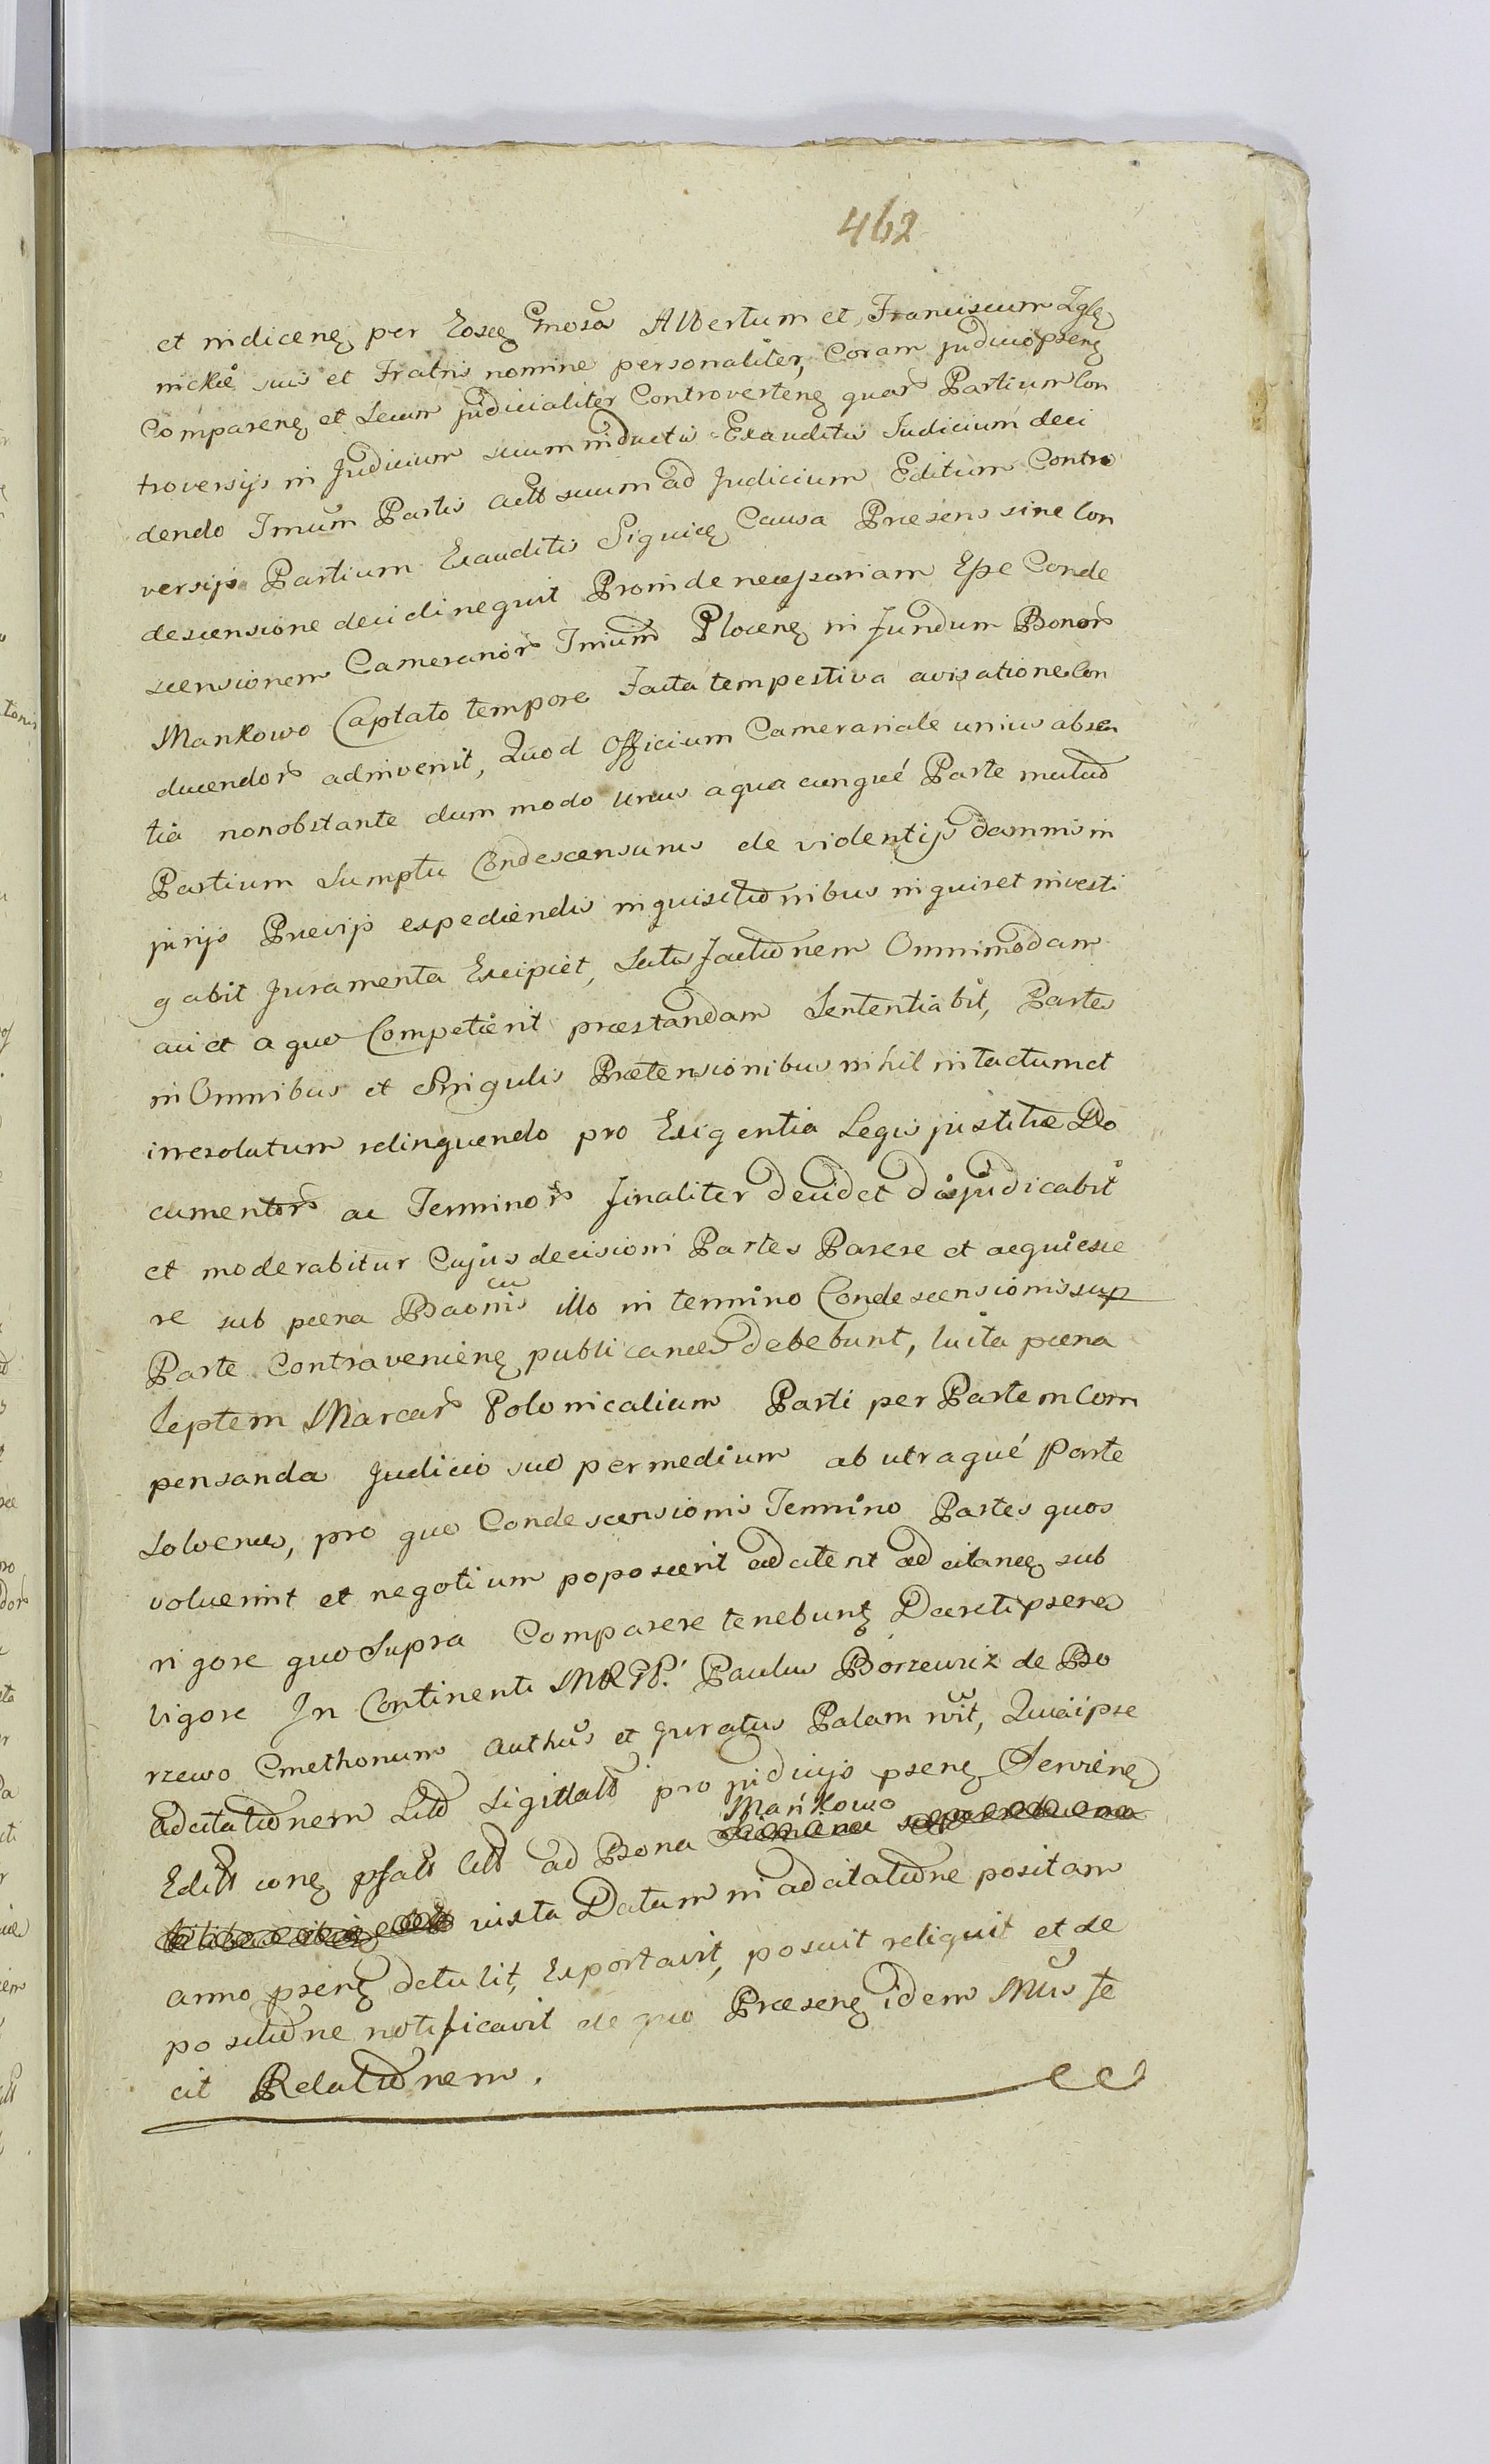 462
et indiceñ per Eosce Gnosos Albertum et Franciscum Zgle
nickie suis et Fratris nomine personaliter, Coram judicio pseng
Compareng et Secum judicialiter Controverteng quar Partium Con
troversijs in Judicium suum inductis Exauditis Judicium deci
dendo Tmum Partis actt suum ad Judicium Editum Contro
versijs Partium Exauditis Siquidem Causa Præsens sine Con
descensione decidi nequit Proinde necessariam Esse Conde
scensionem Camerarior Tmium Ploceng in Fundum Bonor
Mankowo Captato tempore Facta tempestiva avisatione Con
ducendor adinvenit, Quod Officium Camerariale unius absen
tia nonobstante dum modo unus a qua cunque Parte mutuo
Partium Sumptu Condescensurus de violentijs damnis in
jurijs Prævijs expediendis inquisitionibus inquiret investi
gabit Juramenta Excipiet, Satisfactionem Omnimodam
cui et a quo Competierit præstandam Sententiabit, Partes
in Omnibus et Singulis Prætensionibus nihil intactum et
irresolutum relinquendo pro Exigentia Legis justitiæ Do
cumentor ac Terminor finaliter decidet dijudicabit
et moderabitur Cujus decisioni Partes Parere et acquiesce
re sub pœna Baonis illo in termino Condescensionis sup
Parte Contraveniene publicanda debebunt, luita pœna
Septem Marcar Polonicalium Parti per Partem Com
pensanda Judicio suo permedium ab utraque Parte
Solvenda, pro quo Condescensionis Termino Partes quos
voluerint et negotium poposcerit adcitent adcitaneg sub
rigore quo Supra Comparere tenebunt Decreti psena
vigore In Continenti MRPP. Paulus Borzewicz de Bo
rzewo Cmethonum authus et Juratus Palam rcit, Quia ipse
adcitationem Litt Sigillatt pro judicijs pseng Servieng
Editt coneg psatt Citt ad Bona Mańkowo
iuxta Datam in adcitatione positam
anno pseng detulit, Exportavit, posuit reliquit et de
positione notificavit de quo Præseng idem Mus fe
cit Relationem.